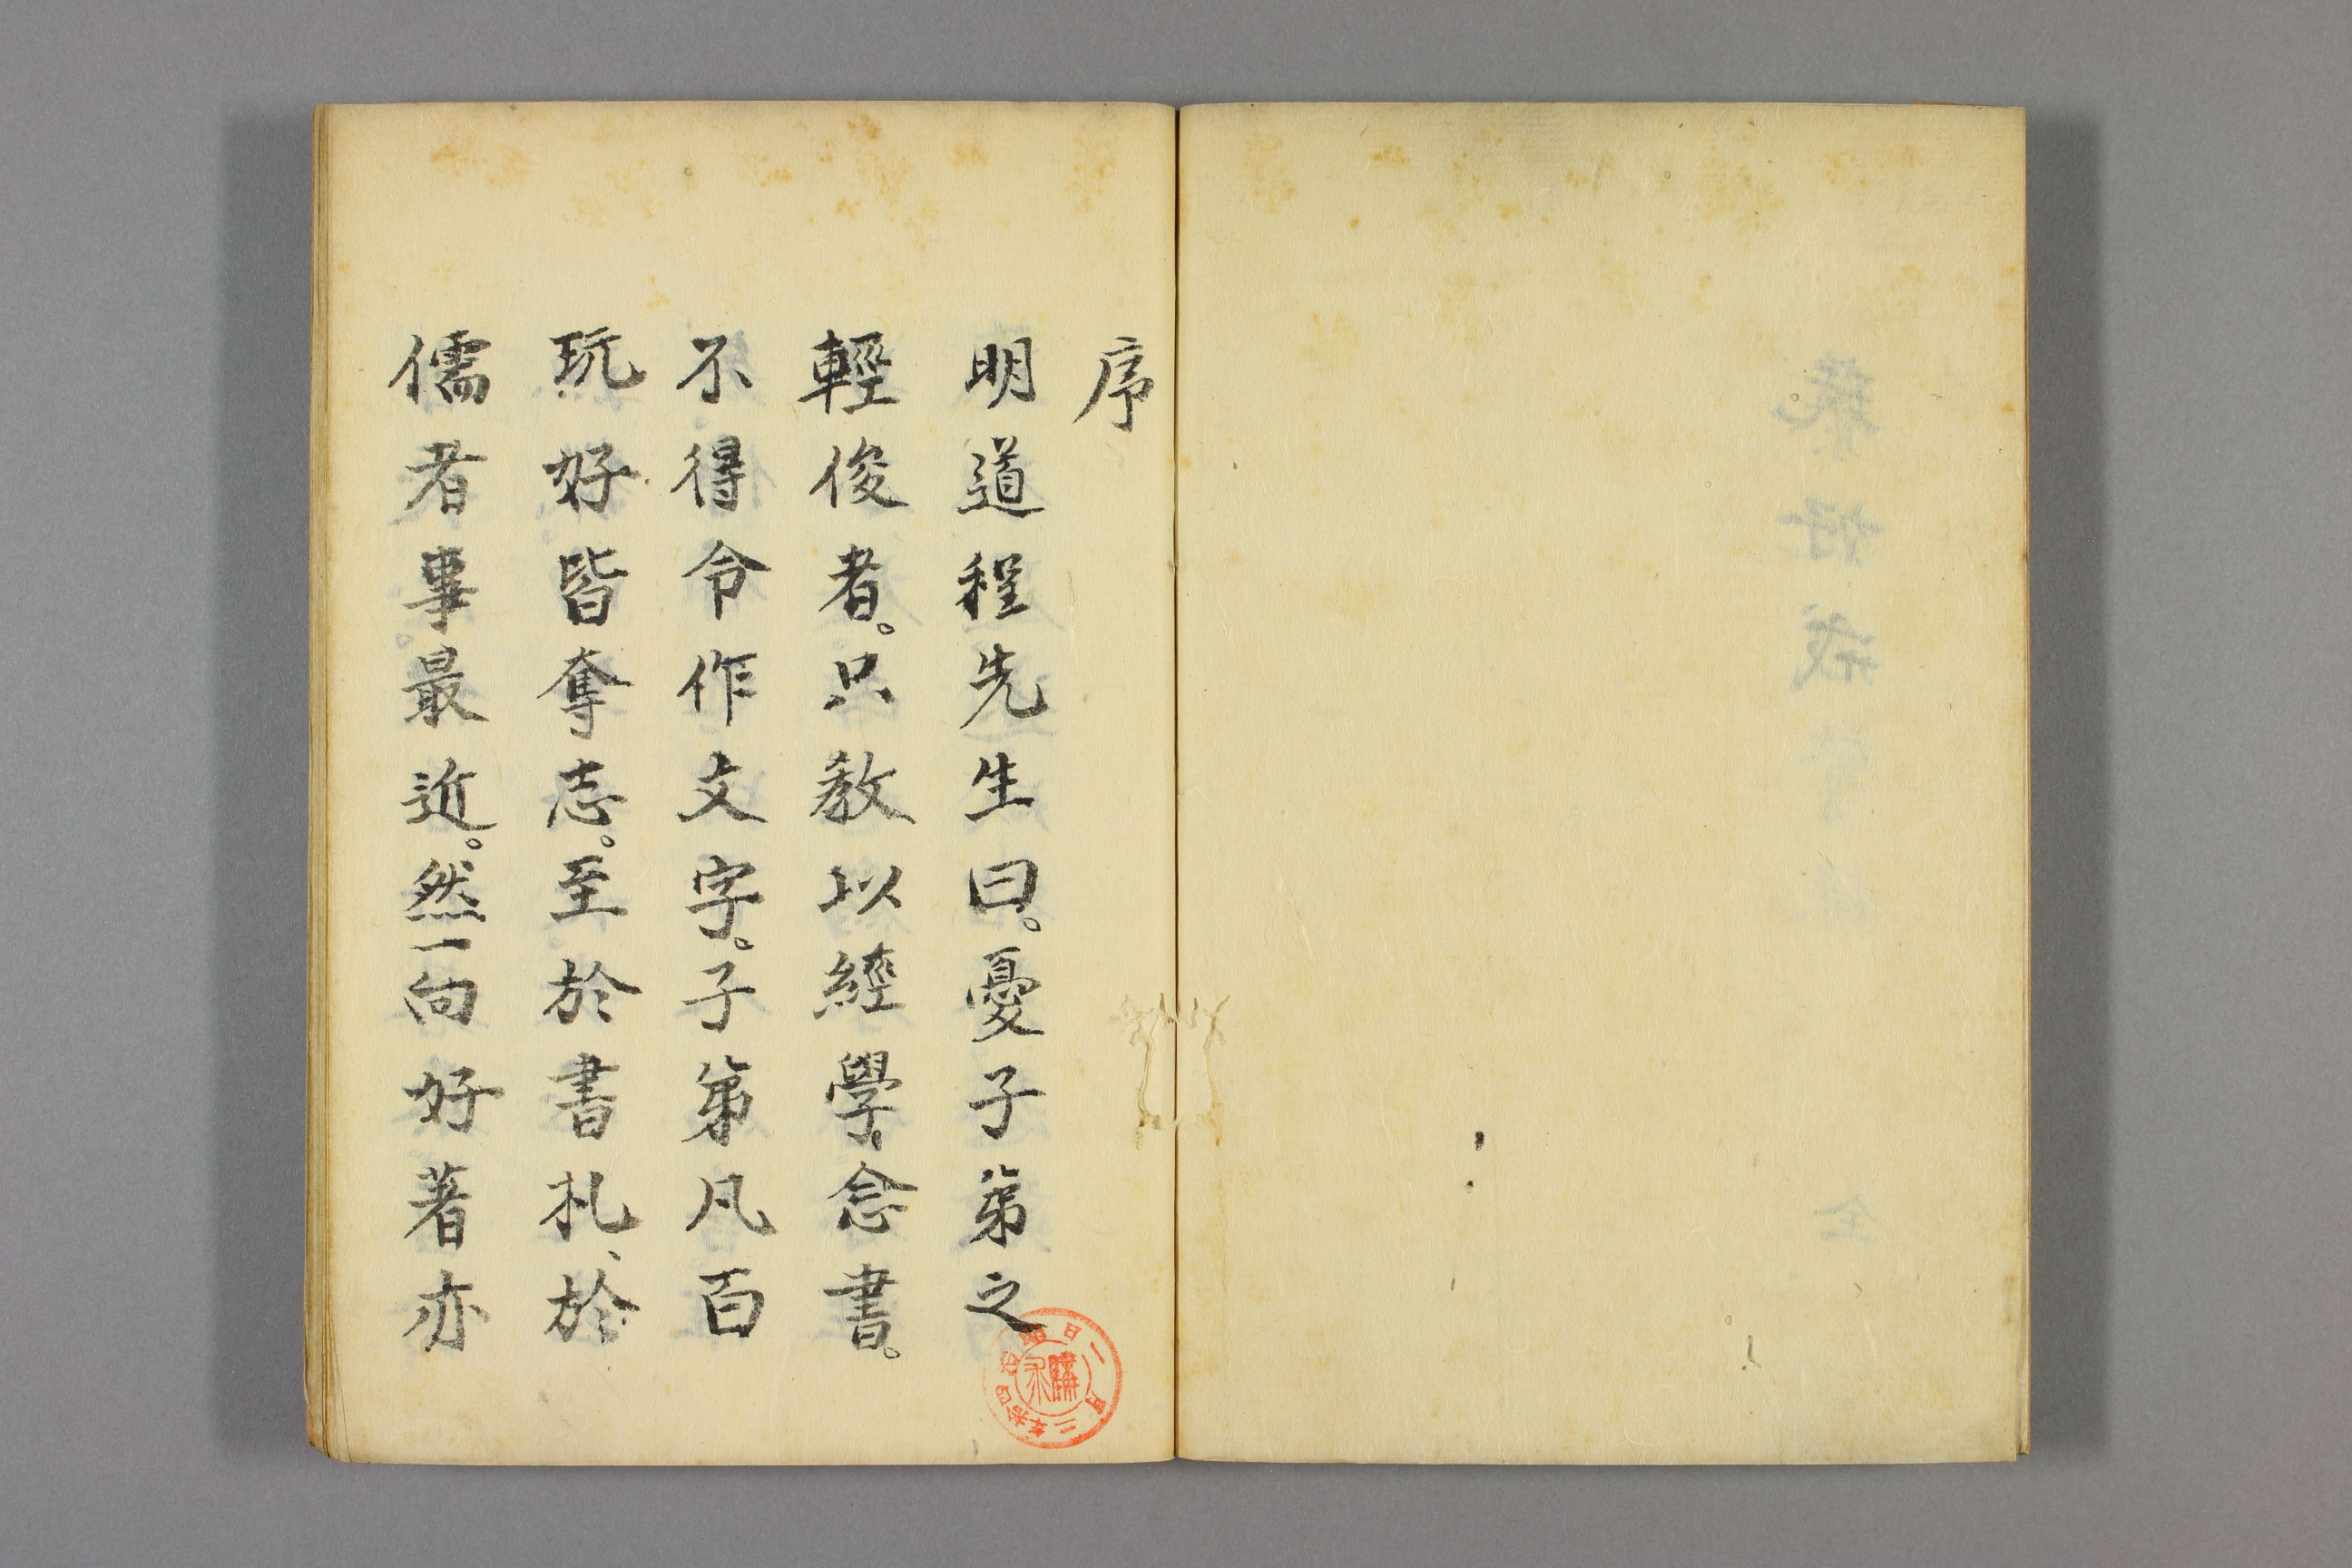 序
明道程先生曰。憂子弟之
輕俊者。只教以經學、念書。
不得令作文字。子弟凡百
玩好皆奪志。至於書札、於
儒者事最近。然一向好著亦